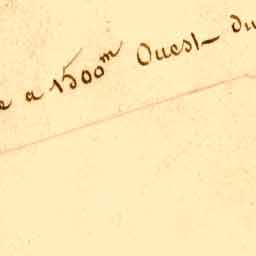 e a 1500m Ouest du